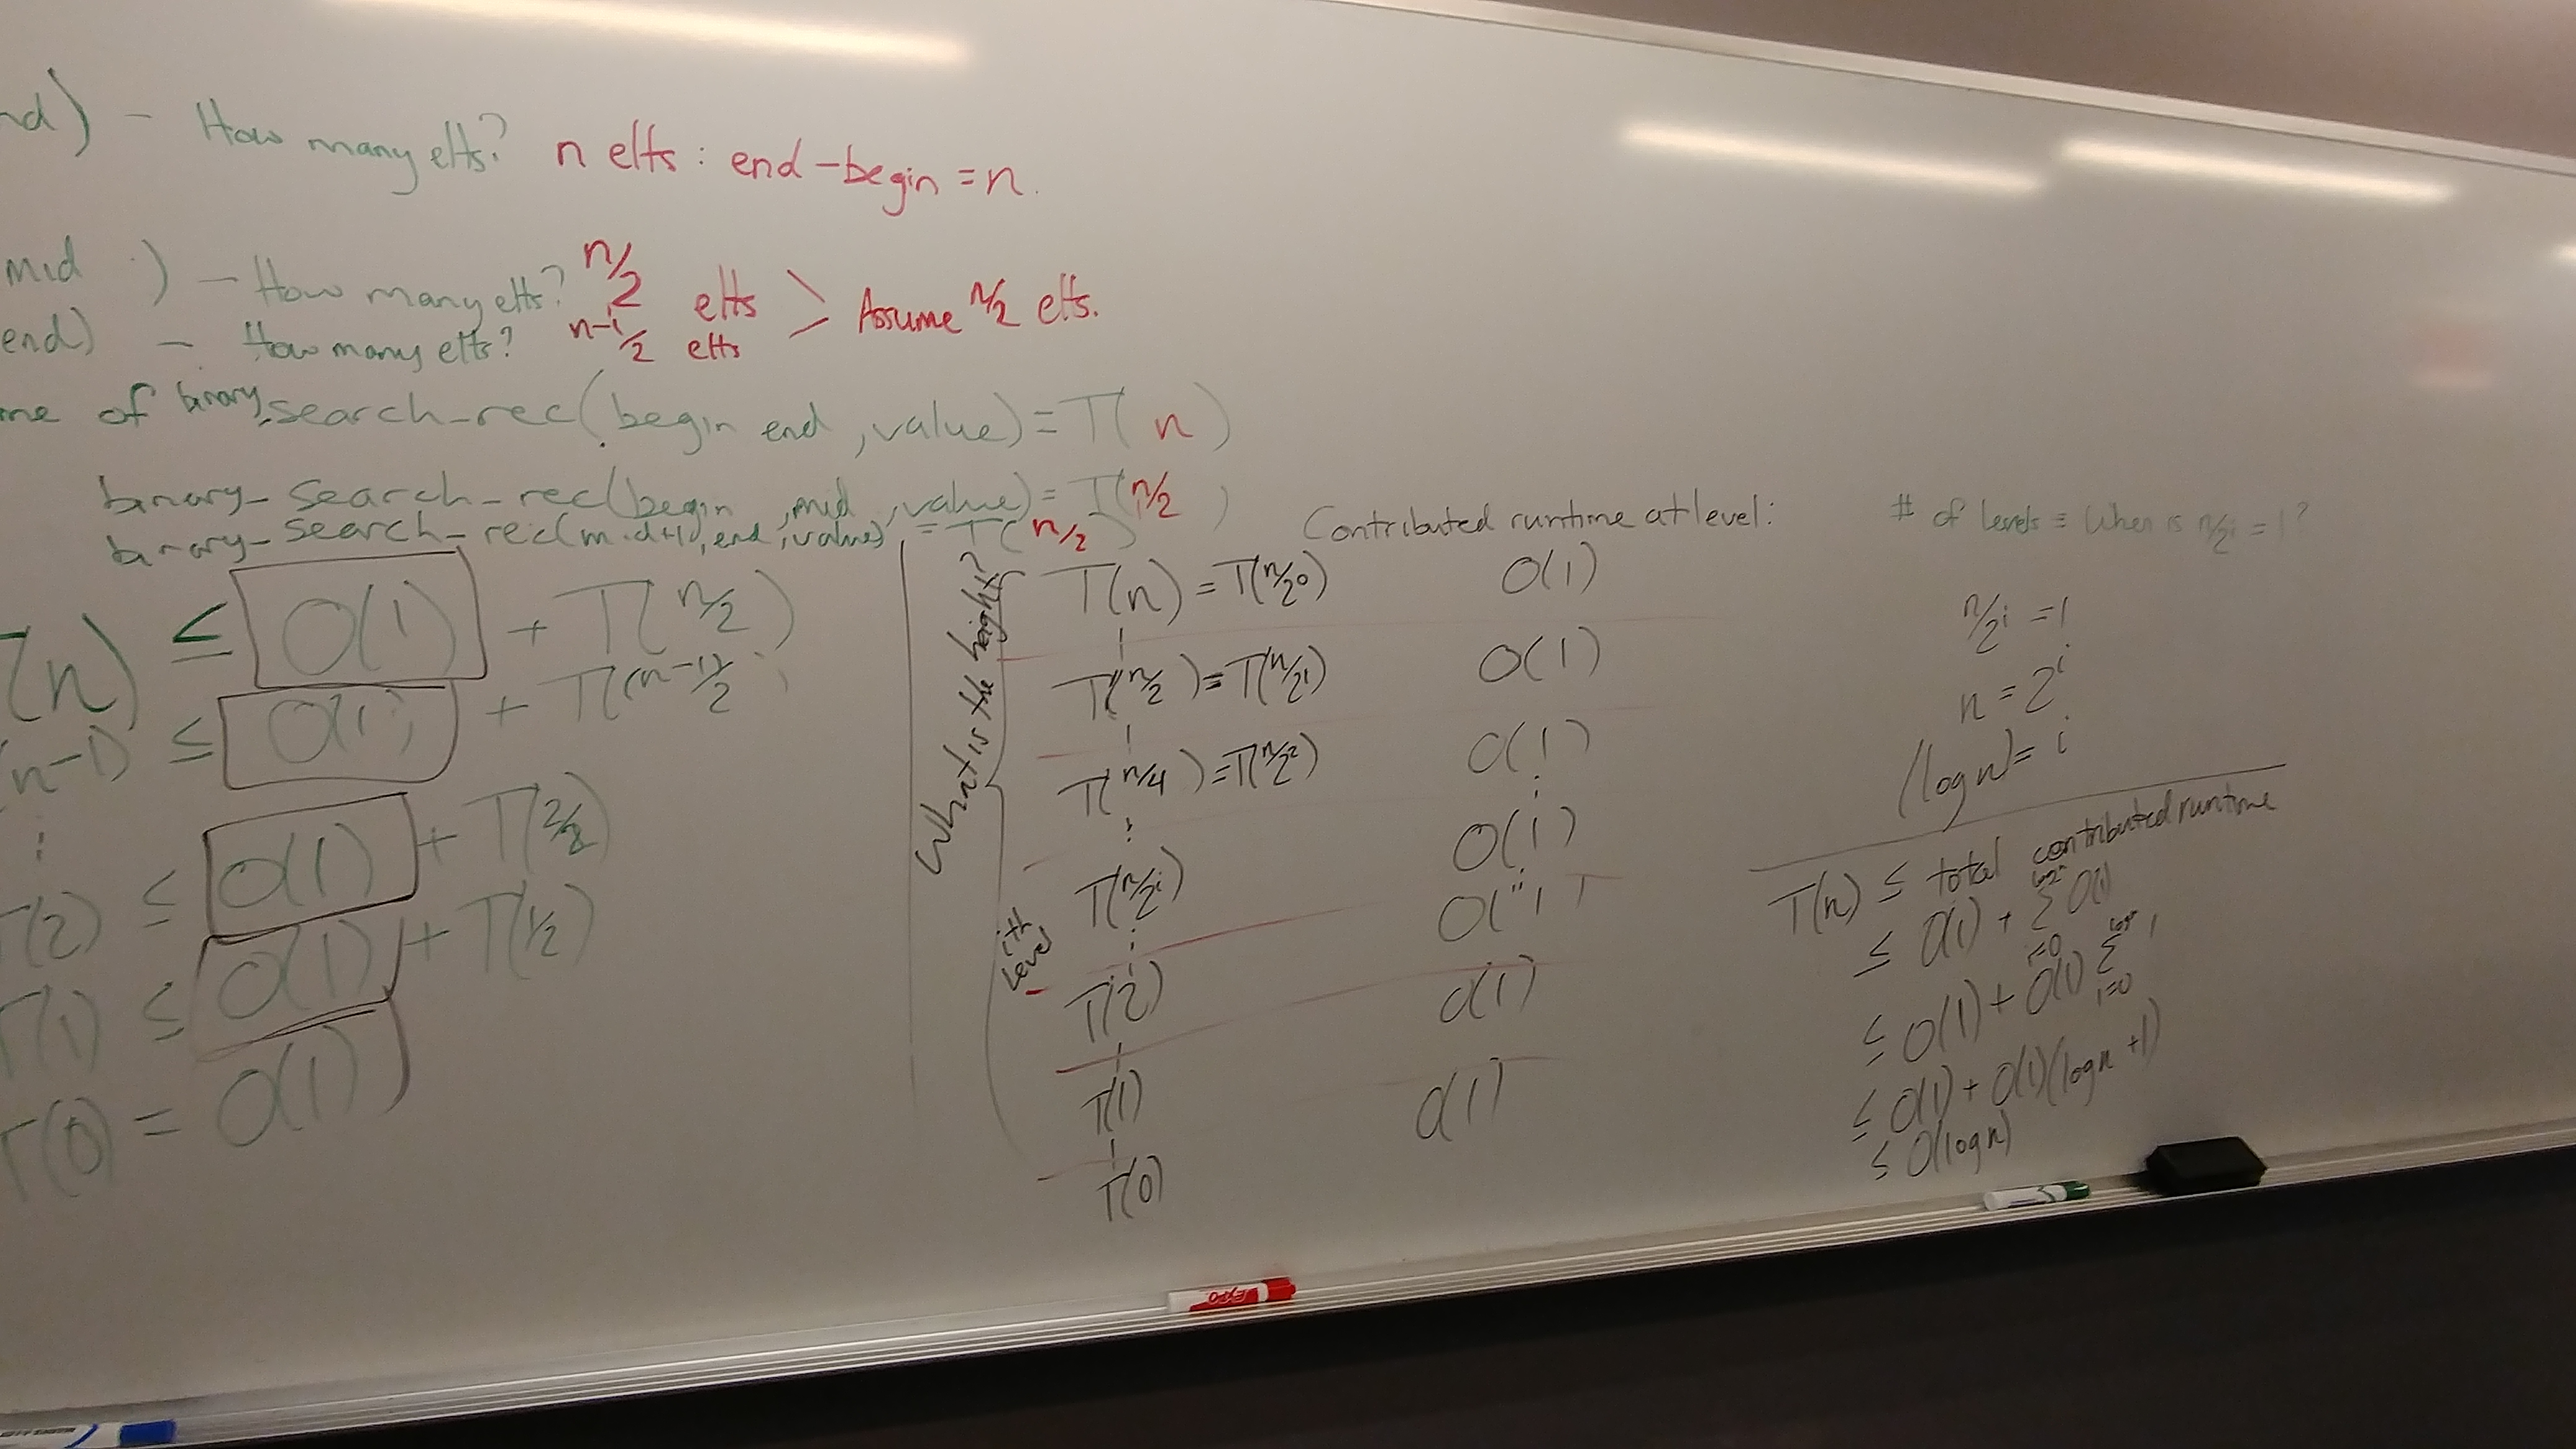 nd) - How many elts? n elts : end - begin = n.
mid ) - How many elts? n/2 elts > Assume n/2 elts.
end) - How many elts? n-1/2 elts
me of binary_search_rec(begin end, value) = T( n )
binary_search_rec(begin, mid, value) = T(n/2 )
binary_search_rec(mid+1, end, value) = T( n/2 )
T(n) ≤ O(1) + T(n/2)
(n-1) ≤ O(1) + T((n-1)/2)
⋮
T(2) ≤ O(1) + T(2/2)
T(1) ≤ O(1) + T(1/2)
T(0) = O(1)
What is the height?
ith level
Contributed runtime at level:
T(n) = T(n/2^0) O(1)
T(n/2) = T(n/2^1) O(1)
T(n/4) = T(n/2^2) O(1)
⋮
T(n/2^i) O(1)
⋮
O(1)
T(2) O(1)
T(1) O(1)
T(0)
# of levels = When is n/2^i = 1?
n/2^i = 1
n = 2^i
(log n) = i
T(n) ≤ total contributed runtime
≤ O(1) + Σ_{i=0}^{log n} O(1)
≤ O(1) + O(1) Σ_{i=0}^{log n} 1
≤ O(1) + O(1)(log n + 1)
≤ O(log n)
EXPO